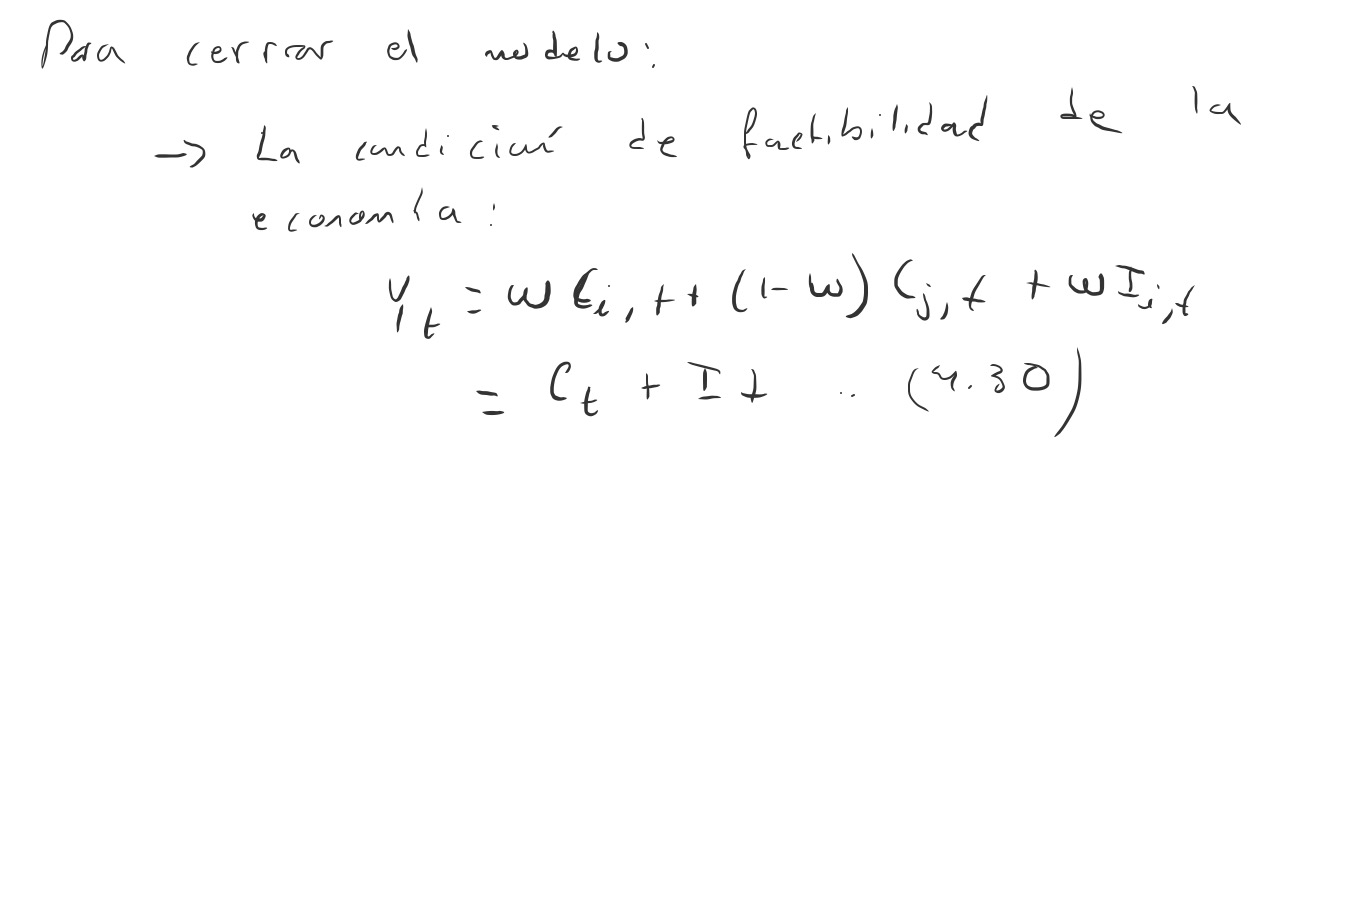 Para cerrar el modelo:
→ La condición de factibilidad de la
economía:
Y_t = ω C_{i,t} + (1-ω) C_{j,t} + ω I_{i,t}
= C_t + I_t .. (4.30)